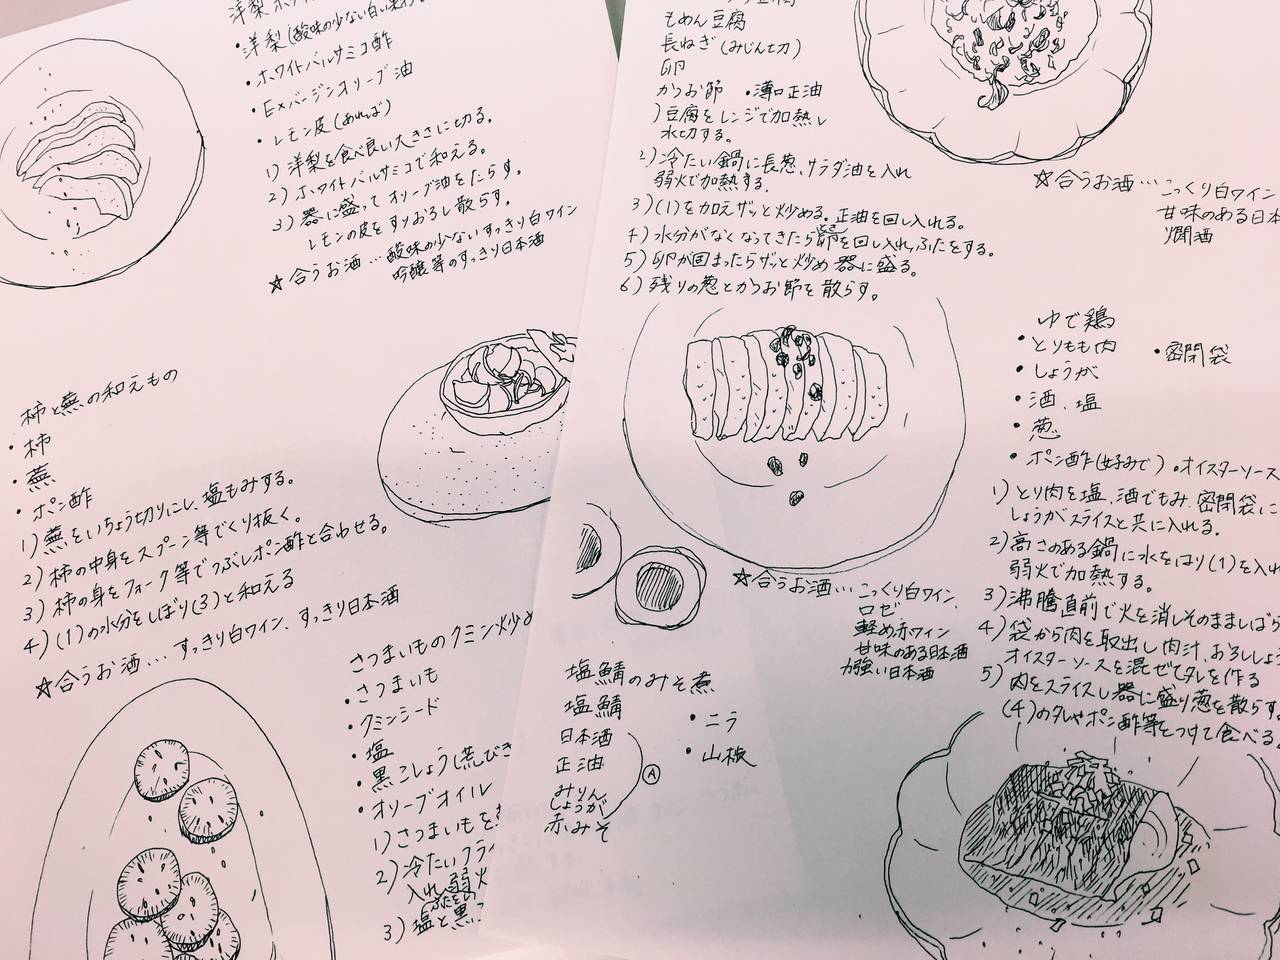 ・洋梨(酸味の少ない白い
・ホワイトバルサミコ酢
・Exバージンオリーブ油
・レモン皮(あれば)
1)洋梨を食べ良い大きさに切る。
2)ホワイトバルサミコで和える。
3)器に盛ってオリーブ油をたらす。
レモンの皮をすりおろし散らす。
☆合うお酒…酸味の少ないすっきり白ワイン
吟醸等のすっきり日本酒
柿と蕪の和えもの
・柿
・蕪
・ポン酢
1)蕪をいちょう切りにし、塩もみする。
2)柿の中身をスプーン等でくり抜く。
3)柿の身をフォーク等でつぶしポン酢と合わせる。
4)(1)の水分をしぼり(3)と和える
☆合うお酒…すっきり白ワイン、すっきり日本酒
さつまいものクミン炒め
・さつまいも
・クミンシード
・塩
・黒こしょう(荒びき
・オリーブオイル
1)さつまいもを
2)冷たいフライ
入れ弱火
ふたをし
3)塩と黒
もめん豆腐
長ねぎ(みじん切)
卵
かつお節 ・薄口正油
)豆腐をレンジで加熱し
水切する。
2)冷たい鍋に長葱、サラダ油を入れ
弱火で加熱する。
3)(1)を加えザッと炒める。正油を回し入れる。
4)水分がなくなってきたら卵を回し入れふたをする。
5)卵が固まったらザッと炒め器に盛る。
6)残りの葱とかつお節を散らす。
☆合うお酒…こっくり白ワイン
甘味のある日本
燗酒
ゆで鶏
・とりもも肉 ・密閉袋
・しょうが
・酒、塩
・葱
・ポン酢(好みで) ・オイスターソース
1)とり肉を塩、酒でもみ、密閉袋に
しょうがスライスと共に入れる。
2)高さのある鍋に水をはり(1)を入れ
弱火で加熱する。
3)沸騰直前で火を消しそのまましばら
4)袋から肉を取出し肉汁、おろししょう
オイスターソースを混ぜてタレを作る
5)肉をスライスし器に盛り葱を散らす。
(4)のタレやポン酢等をつけて食べる。
☆合うお酒…こっくり白ワイン、
ロゼ
軽め赤ワイン
甘味のある日本酒
力強い日本酒
塩鯖のみそ煮
塩鯖 ・ニラ
日本酒 ・山椒
正油 Ⓐ
みりん
しょうが
赤みそ